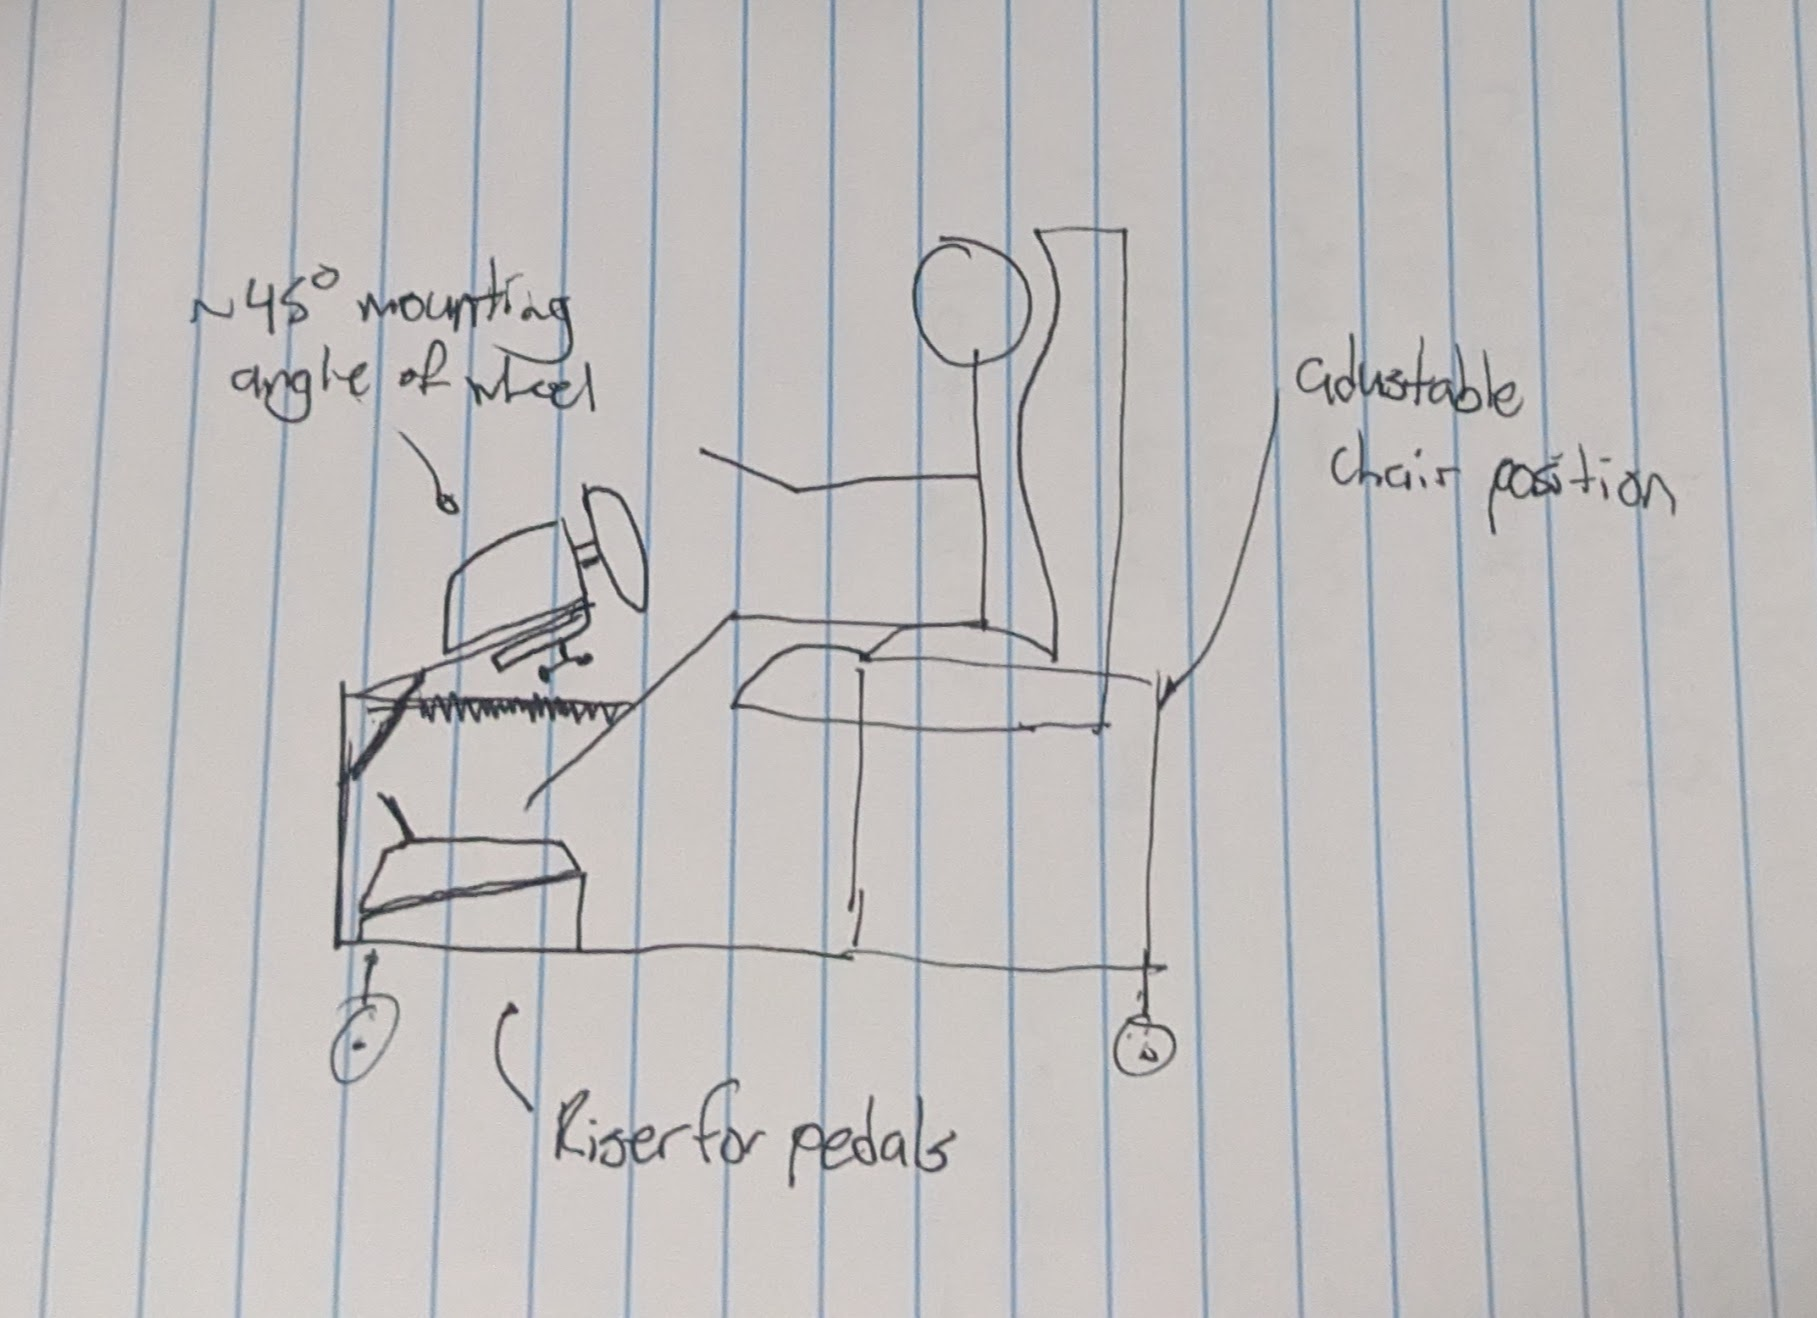 ~45° mounting
angle of wheel
adustable
chair position
Riser for pedals